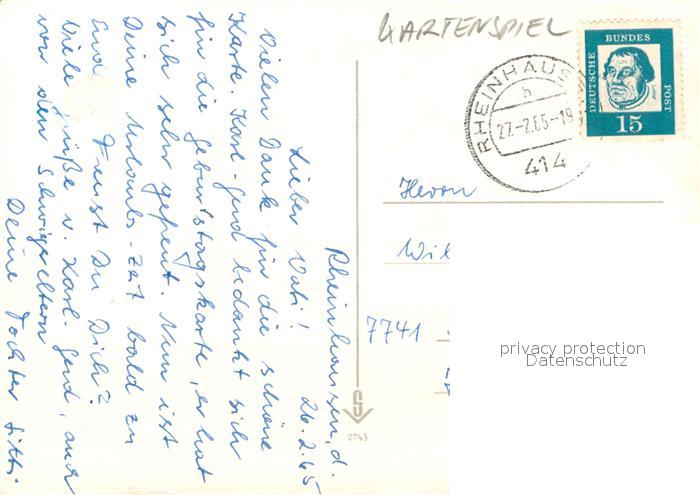 Rheinhausen, d.
26.2.65
Lieber Vati!
Vielen Dank für die schöne
Karte. Karl-Gerd bedankt sich
für die Geburtstagskarte, er hat
sich sehr gefreut. Nun ist
Deine Urlaubs-Zeit bald zu
End. Freust Du Dich?
Viele Grüße v. Karl-Gerd, auch
von den Schwiegereltern
Deine Tochter
KARTENSPIEL
RHEINHAUS
h
27.-2.65-19
414
DEUTSCHE
BUNDES
POST
15
Herrn
Wil
7741
privacy protection
Datenschutz
S
2743